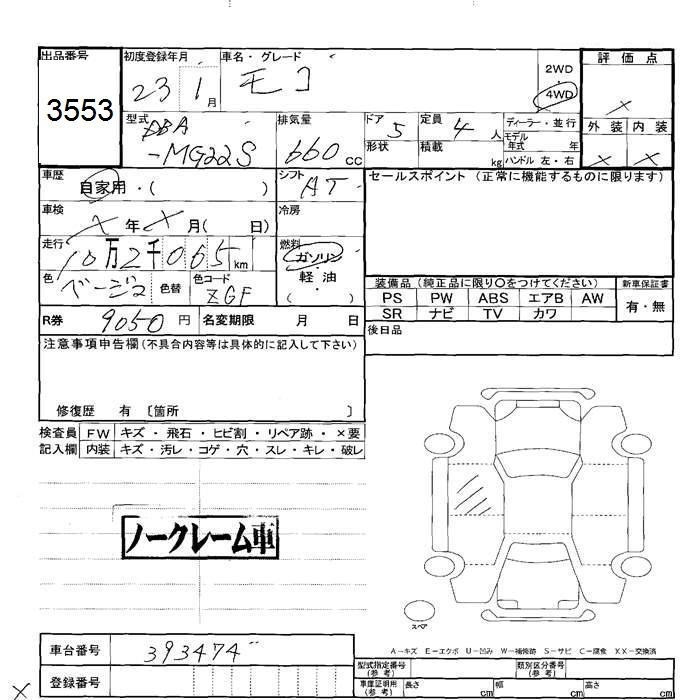 出品番号 初度登録年月 車名・グレード 評価点
3553 23 1月 モコ 2WD 4WD ×
外装 内装
× ×
型式 DBA-MG22S 排気量 660cc ドア 5 定員 4人 ディーラー・並行
形状 積載 kg モデル年式 年
ハンドル 左・右
車歴 自家用・( ) シフト AT セールスポイント (正常に機能するものに限ります)
車検 ×年×月( 日) 冷房
走行 10万2千065km 燃料 ガソリン・軽油・( )
色 ベージュ 色替 色コード ZGF
装備品 (純正品に限り○をつけてください) 新車保証書
PS PW ABS エアB AW 有・無
SR ナビ TV カワ
R券 9050円 名変期限 月 日
後日品
注意事項申告欄(不具合内容等は具体的に記入して下さい)
修復歴 有 〔箇所 〕
検査員 FW キズ・飛石・ヒビ割・リペア跡・×要
記入欄 内装 キズ・汚レ・コゲ・穴・スレ・キレ・破レ
ノークレーム車
スペア
A-キズ E-エクボ U-凹み W-補修跡 S-サビ C-腐食 XX-交換済
車台番号 393474
登録番号
型式指定番号(参考) 類別区分番号(参考)
車庫証明用(参考) 長さ cm 幅 cm 高さ cm
×